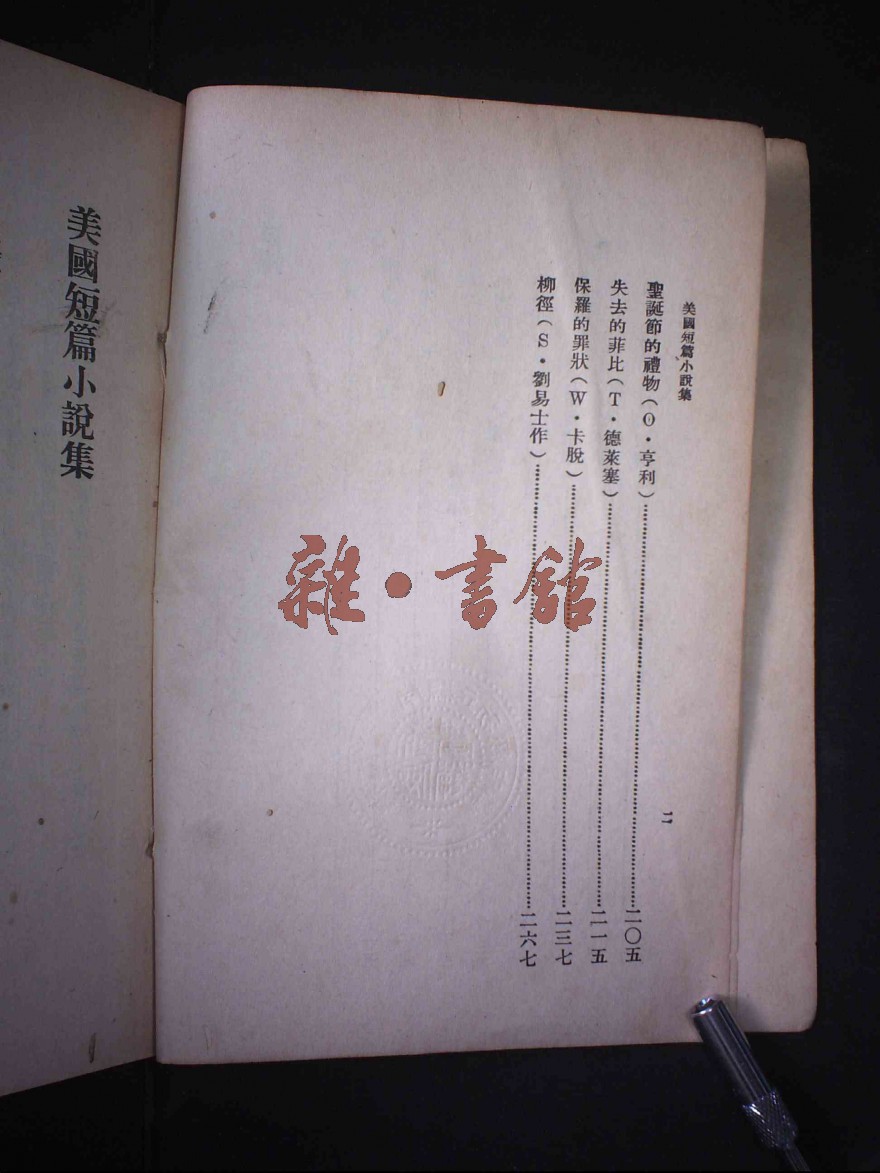 美國短篇小說集
二
聖誕節的禮物（O·亨利）…………二〇五
失去的菲比（T·德萊塞）…………二一五
保羅的罪狀（W·卡脫）…………二三七
柳徑（S·劉易士作）…………二六七
雜·書館
美國短篇小說集